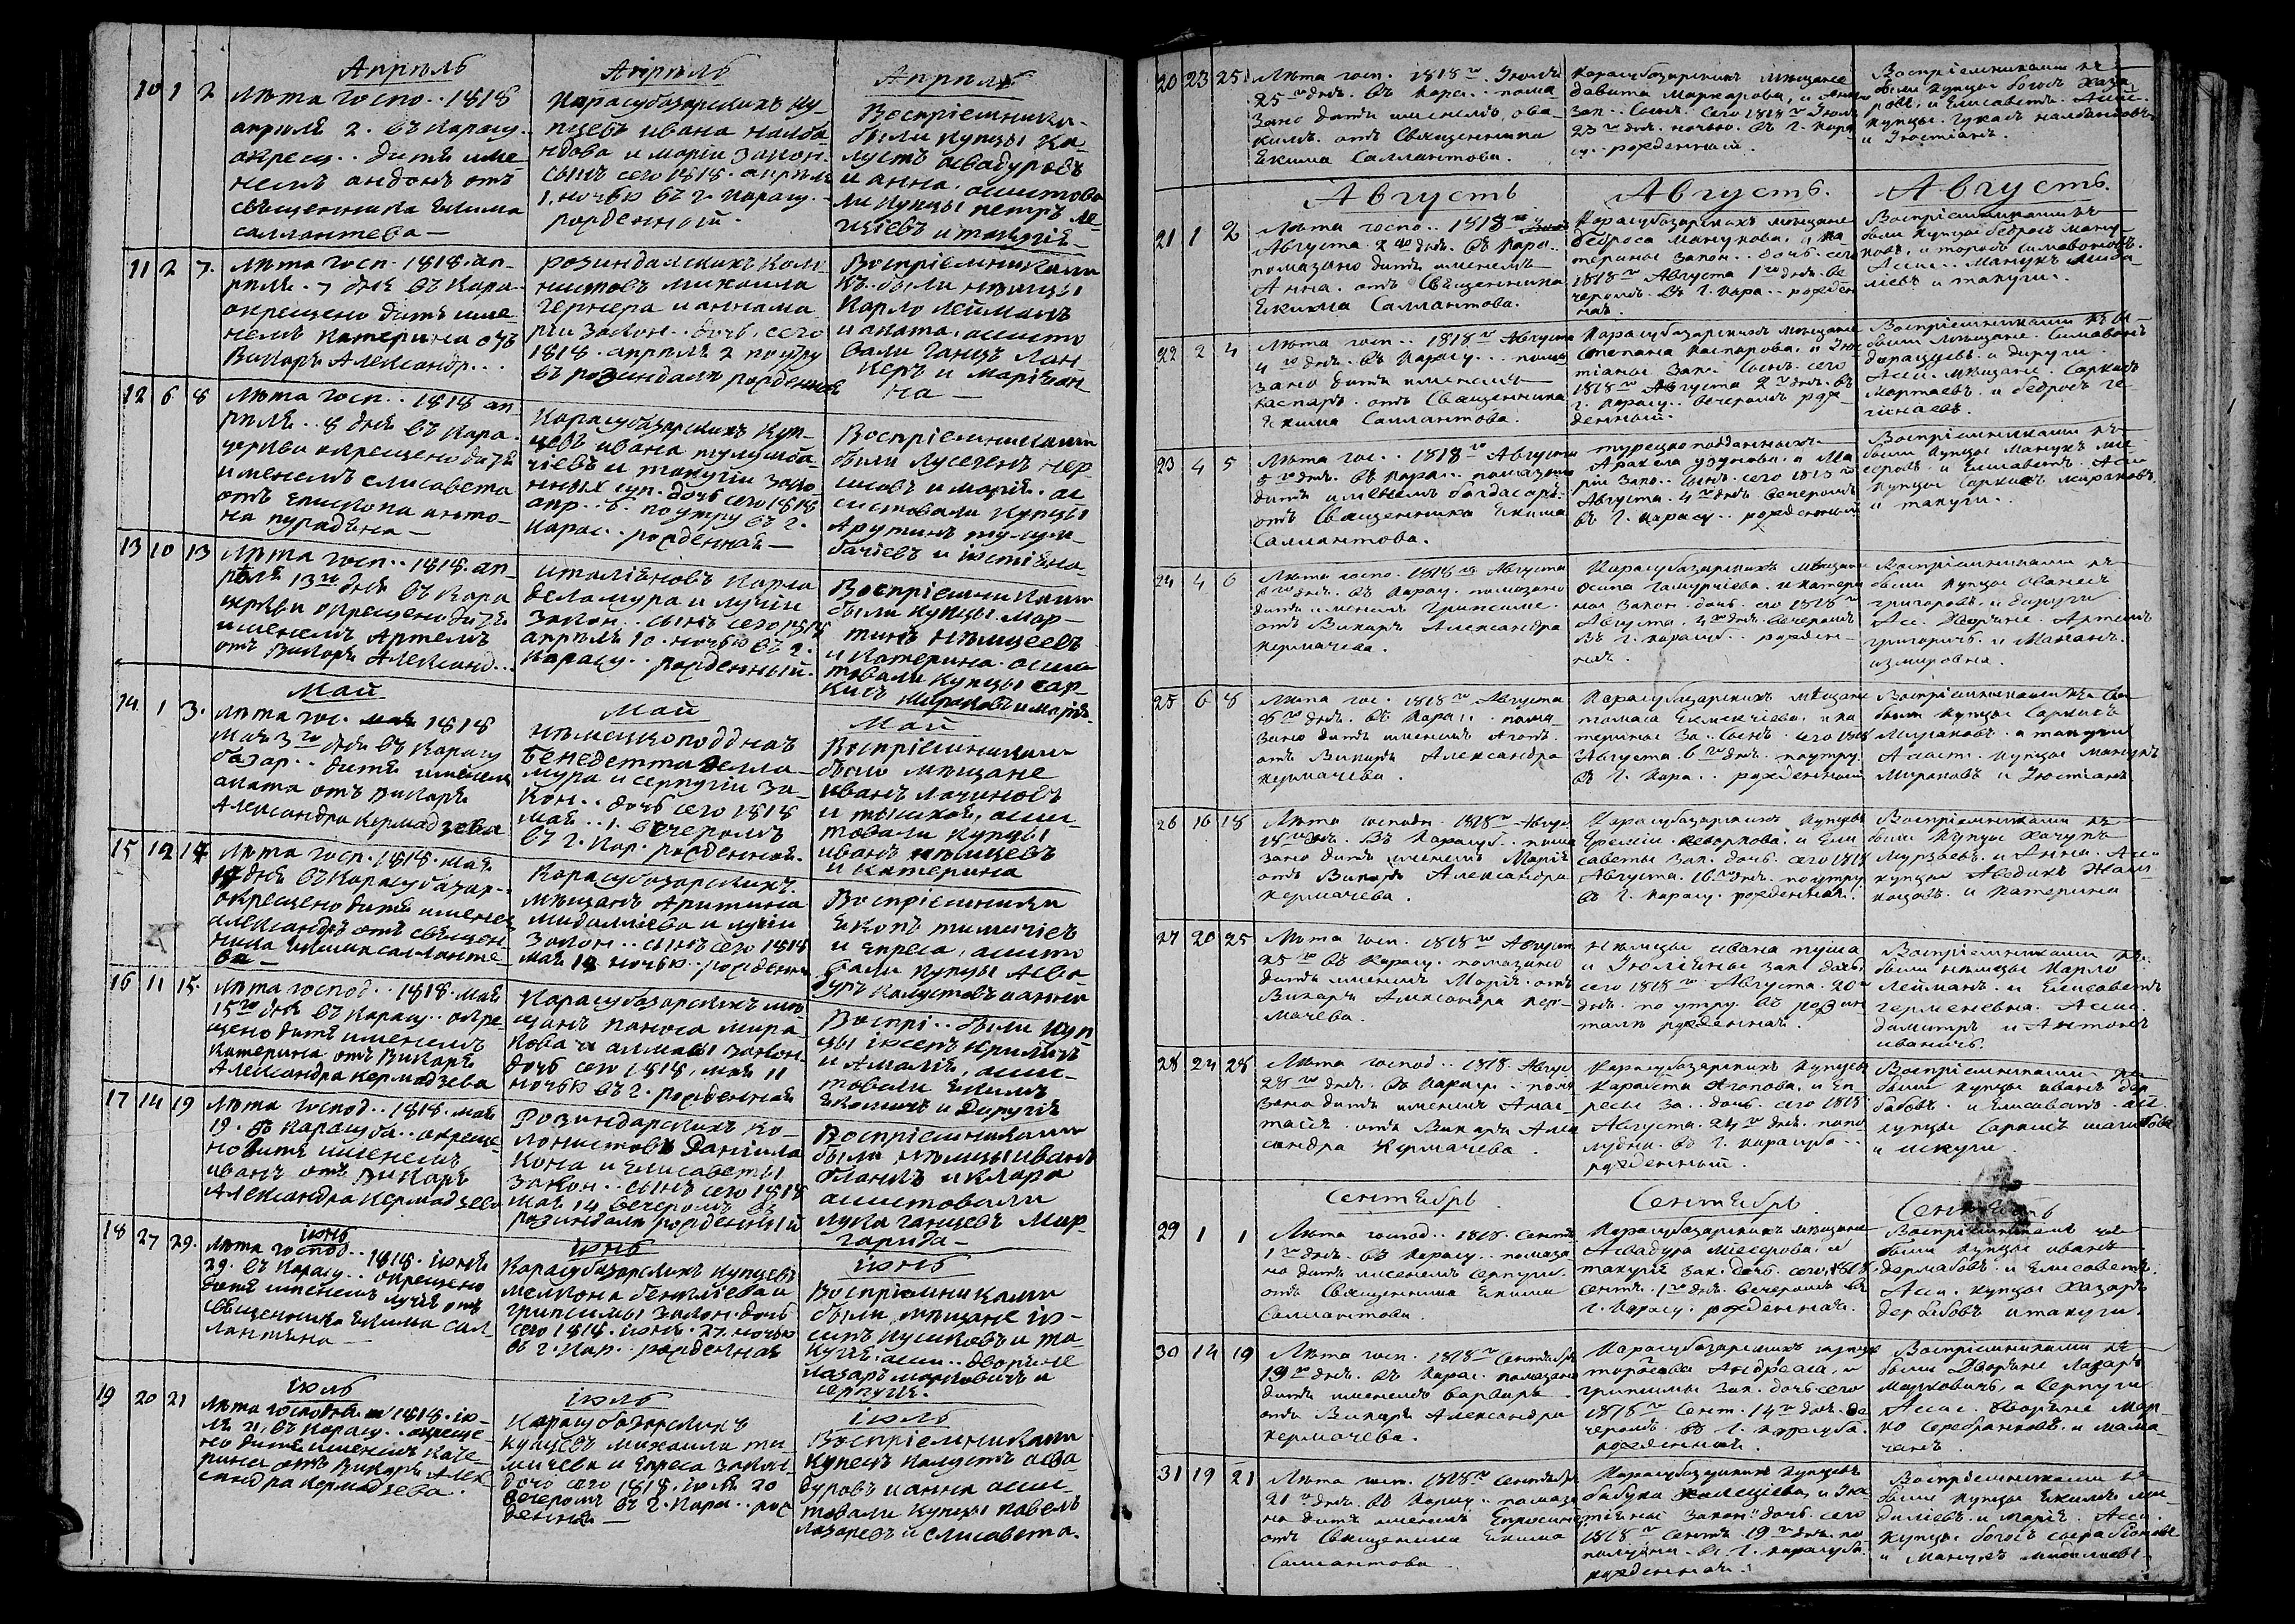 Апрѣль
Апрѣль
Апрѣль
10 1 2
Лѣта госпо.. 1818
апрѣля 2. въ Карасу.
окрещ.. дитя име
немъ андонъ отъ
священника Екима
саллантева—
Карасубазарскихъ ку
пцевъ ивана налба
ндова и марiи закон.
сынъ сего 1818. апрѣля
1. ночью въ г. Карасу.
рожденный.
Воспрiемника.
были купцы Ка
лустъ асвадуровъ
и анна. асистова
ли купцы петръ
и такугiя—
11 2 7.
Лѣта госп. 1818. ап-
рѣля. 7 дня въ Кара.
окрещено дитя име
немъ Катерина отъ
Викаря Александр...
розиндалскихъ коло
нистовъ михаила
гернера и аннама
рiи закон.. дочь, сего
1818. апрѣля 2 поутру
въ розиндалѣ рожденная
Воспрiемниками
были нѣмцы
Карло лейманъ
и агата. асисто
вали ганцъ лан-
керъ и марiан
на—
12 6 8
Лѣта госп.. 1818 ап
рѣля.. 8 дня въ Кара.
церкви окрещено дитя
именемъ елисавета
отъ епископа анто-
на
Карасубазарскихъ куп-
цевъ ивана тулумба
чiевъ и такугiи зако
нныхъ суп. дочь сего 1818
апр.. 6. поутру въ г.
Карас.. рожденная—
Воспрiемниками
были лусегенъ нер-
совъ и марiя. ас
систовали купцы
Арутинъ тулум
бачiевъ и iюстiяна.
13 10 13
Лѣта госп.. 1818. ап-
рѣля 13го дня въ Кара
церкви окрещено дитя
именемъ Артемъ
отъ Викаря Александ...
италiановъ Карла
деламура и лучiи
закон.. сынъ сего 1818
апрѣля 10. ночью въ г.
Карасу.. рожденный.
Воспрiемниками
были купцы мар-
тинъ нѣмцеевъ
и катерина. асис
товали купцы сар-
кисъ мираковъ и марiя.
Май
Май
Май
14. 1 3.
Лѣта гос. 1818
мая 3го дня въ Карасу
базар.. дитя именемъ
агата отъ Викаря
Александра Кермадзева
нѣмецкоподднахъ
Бенедетта делла-
мура и серпугiи за-
кон.. дочь сего 1818
мая.. 1. вечеромъ
въ г. Кар. рожденная.
Воспрiемниками
было мѣщане
иванъ лачиновъ
и асис-
товали купцы
иванъ нѣмцевъ
и катерина
15 12 17
Лѣта госп. 1818. мая
17 дня въ Карасубазар..
окрещено дитя именем
александръ отъ священ-
ника Екима салланте-
ва—
Карасубазарскихъ
мѣщанъ Аритина
мидаллiева и лучiи
закон.. сынъ сего 1818
мая 12 ночью.. рожденн
Воспрiемники
и епреса, асисто
вали купцы Асва
дуръ калустовъ и анна
16 11 15.
Лѣта господ.. 1818. мая
15го дня въ Карасу.. окре
щено дитя именемъ
Катерина отъ Викаря
Александра Кермадзева
Карасубазарскихъ мѣ-
щанъ паноса мира
кова и алмасы закон
дочь сего 1818. мая 11
ночью въ г. рожденная
Воспрi.. были куп
цы
и Амалiя, асис-
товали Екимъ
и Диругiя
17 14 19
Лѣта господ.. 1818. мая
19. въ Карасуба.. окреще-
но дитя именемъ
иванъ отъ Викаря
Александра Кермадзева
Розиндарскихъ ко-
лонистовъ Данiила
Кона и Елисаветы
закон.. сынъ сего 1818
мая 14 вечеромъ въ
розиндалѣ рожденный
Воспрiемниками
были нѣмцы иванъ
и клара
асистовали
лука ганцевъ мар-
гарида—
iюнь
iюнь
iюнь
18 27 29.
Лѣта господ.. 1818. iюня
29. въ Карасу.. окрещено
дитя именемъ лучiя отъ
священника Екима сал
лантева—
Карасубазарскихъ купцевъ
мелкона и
грипсимы закон. дочь
сего 1818. iюня. 27. ночью
въ г. Кар.. рожденная
Воспрiемниками
были мѣщане iо-
сипъ кушковъ и та
кугiя. асси.. дворяне
лазаръ марковичъ и
серпугiя.
iюль
iюль
iюль
19 20 21
Лѣта господня 1818. iю-
ля 21. въ Карасу.. окреще-
но дитя именемъ Кате-
рина отъ Викаря Алек
сандра Кермадзева.
Карасубазарскихъ
купцевъ михаила ти
мичева и Епреса закон.
дочь сего 1818. iюля 20
вечеромъ въ г. Кара.. рож
денная—
Воспрiемниками
купецъ калустъ асва
дуровъ и анна асси-
товали купцы павелъ
лазаревъ и елисавета.
20 23 25.
Лѣта госп. 1818го Iюля
25го дня. въ Карас.. пома
зано дитя именемъ, ова-
кимъ. отъ Священника
Екима Саллантова.
Карасубазарскихъ мѣщане
давита маркарова, и Анны
зак.. сынъ. сего 1818го Iюля
23го дня. ночью. въ г. Кара
су.. рожденный.
Воспрiемниками
были купцы богосъ Хаза
ровъ, и Елисаветъ. Асис.
купцы. гукасъ налбандовъ
и Iюстiанъ.
Августъ
Августъ.
Августъ.
21 1 2
Лѣта госпо.. 1818го
Августа. 2го дня. въ Кара..
помазано дитя именемъ
Анна. отъ Священника
Екима Саллантова.
Карасубазарскихъ мѣщане
бедроса Манукова, и ка
терины закон.. дочь. сего
1818го Августа 1го дня. ве
черомъ. въ г. Кара.. рожден
ная.
Воспрiемниками
были купцы бедросъ ману
ковъ, и торосъ симавоновъ.
Асси.. Манукъ мида
лiевъ и такуги.
22 2 4
Лѣта госп.. 1818го Августа
4го дня. въ Карасу... пома
зано дитя именемъ
каспаръ. отъ Священника
Екима Саллантова.
Карасубазарскихъ мѣщане
Степана Каспарова, и Iюс
тiаны зак.. сынъ. сего
1818го Августа 2го дня. въ
г. Карасу.. вечеромъ рож-
денный.
Воспрiемниками
были мѣщане. Симавонъ
и дируги.
Асси. мѣщане. Саркисъ
и бедросъ
23 4 5
Лѣта гос.. 1818го Августа
5го дня. въ Кара.. помазано
дитя именемъ багдасаръ.
отъ Священника Екима
Саллантова.
турецкоподданныхъ
Аракела узунова. и Ма
рiи зако.. сынъ. сего 1818го
Августа. 4го дня. вечеромъ
въ г. Карасу.. рожденный
Воспрiемниками
были купцы Манукъ
и Елисаветъ. Асси
купцы Саркисъ мираковъ
и такуги..
24 4 6
Лѣта госпо. 1818го Августа
6го дня. въ Карасу. помазано
дитя именемъ Грипсиме.
отъ Викаря Александра
Кермачева.
Карасубазарскихъ мѣщане
Осипа и катери
ны закон. дочь. сего 1818го
Августа. 4го дня вечеромъ
въ г. Карасуб.. рожден-
ная.
Воспрiемниками
были купцы Ованесъ
григоровъ. и дируги
Асс. дворяне. Артемъ
григоричъ. и Манана
измировна.
25 6 8
Лѣта гос. 1818го Августа
8го дня. въ Кара.. пома-
зано дитя именемъ Агопъ.
отъ Викаря Александра
Кермачева.
Карасубазарскихъ мѣщане
томаса Екмекчiева. и ка
терины за.. сынъ. сего 1818
Августа. 6го дня. поутру
въ г. Кара.. рожденный
Воспрiемниками
были купцы Саркисъ
Мираковъ. и такуги
Асист. купцы Манукъ
Мираковъ и Iюстiанъ
26 16 18
Лѣта господн. 1818го Авгус
18го дня. въ Карасуб.. пома
зано дитя именемъ Марiя
отъ Викаря Александра
Кермачева.
Карасубазарскихъ купцевъ
Еремiи. Кеворкова. и Ели
саветы зак. дочь. сего 1818
Августа. 16го дня. поутру
въ г. Карасу. рожденная.
Воспрiемниками
были купцы Хачукъ
Мурзаевъ. и Анна. Асс.
купцы Аведикъ
и Катерина
27 20 25
Лѣта госп. 1818го Август
25го въ Карасу. помазано
дитя именемъ Марiя. отъ
Викаря Александра Кер-
мачева.
нѣмцы ивана пуша
и Iюлiяны зак. дочь.
сего 1818го Августа. 20го
дня. по утру. въ розин
талѣ рожденная.
Воспрiемниками
были нѣмцы Карло
Лейманъ. и Елисаветъ
германевна. Асси.
димитръ и Антонъ
иваничъ.
28 24 28
Лѣта господ.. 1818. Авгус
28го дня. въ Карасу.. пома
зано дитя именемъ Анас
тасъ. отъ Викаря Алек
сандра Кермачева.
Карасубазарскихъ купцевъ
Карапета Агопова. и Еп
ресы за.. дочь. сего 1818
Августа. 24го дня. попо
лудни. въ г. Карасуба..
рожденный.
Воспрiемниками
были купцы иванъ дер
бабовъ. и Елисаветъ. асс.
купцы Саркисъ
и искуги.
Сентябрь
Сентябрь
Сентябрь
29 1 1
Лѣта господ.. 1818. Сентя
1го дня. въ Карасу.. помаза
но дитя именемъ Серпуги.
отъ Священника Екима
Саллантова.
Карасубазарскихъ мѣщане
Асвадура мисерова. и
такугiя зак. дочь. сего, 1818
сентя. 1го дня. вечеромъ въ
г. Карасу. рожденная.
Воспрiемниками
были купцы иванъ
дербабовъ. и Елисаветъ.
Асси. купцы Хазаръ
дербабовъ и такуги.
30 14 19
Лѣта госп. 1818го Сентября
19го дня. въ Карас. помазано
дитя именемъ варваръ
отъ Викаря Александра
Кермачева.
Карасубазарскихъ купце
торосова Андреаса, и
грипсимы зак. дочь. сего
1818го Сент. 14го дня. ве
черомъ. въ г. Карасуба.
рожденный.
Воспрiемниками
были дворяне Лазаръ
марковичъ, и Серпуги
Асси. дворяне Мар
ко Серебряковъ. и мама
чанъ.
31 19 21
Лѣта госп. 1818го Сентября
21го дня. въ Карасу.. помаза
но дитя именемъ Епросиме
отъ Священника Екима
Саллантова
Карасубазарскихъ купцевъ
бабука и Iюс
тiяны закон. дочь. сего
1818го Сентя. 19го дня. по
полудни. въ г. Карасуба
рожденная.
Воспрiемниками
были купцы Екимъ ми
далiевъ. и Марiя. Асси.
купцы. богосъ
и Манукъ мидалiевъ.